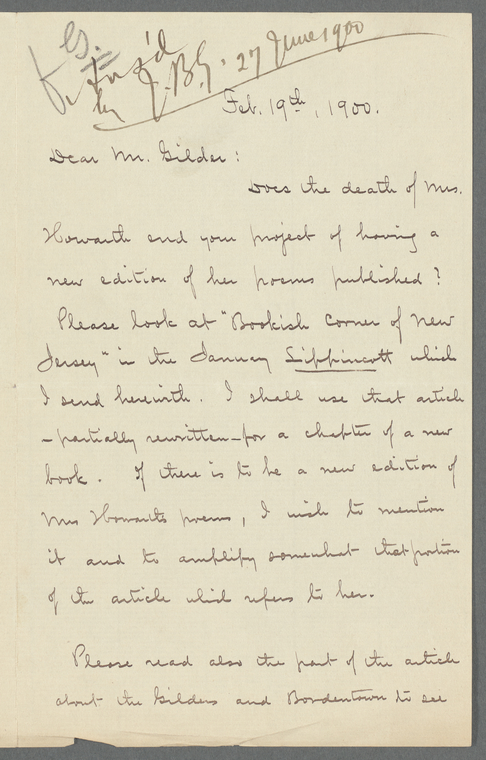 Feb. 19th, 1900.
Dear Mr. Gilder:
Does the death of Mrs.
Howarth end your project of having a
new edition of her poems published?
Please look at "Bookish Corner of New
Jersey" in the January Lippincott which
I send herewith. I shall use that article
-partially rewritten-for a chapter of a new
book. If there is to be a new edition of
Mrs Howarth's poems, I wish to mention
it and to amplify somewhat that portion
of the article which refers to her.
Please read also the part of the article
about the Gilders and Bordentown to see
by J.B.G. 27 June 1900